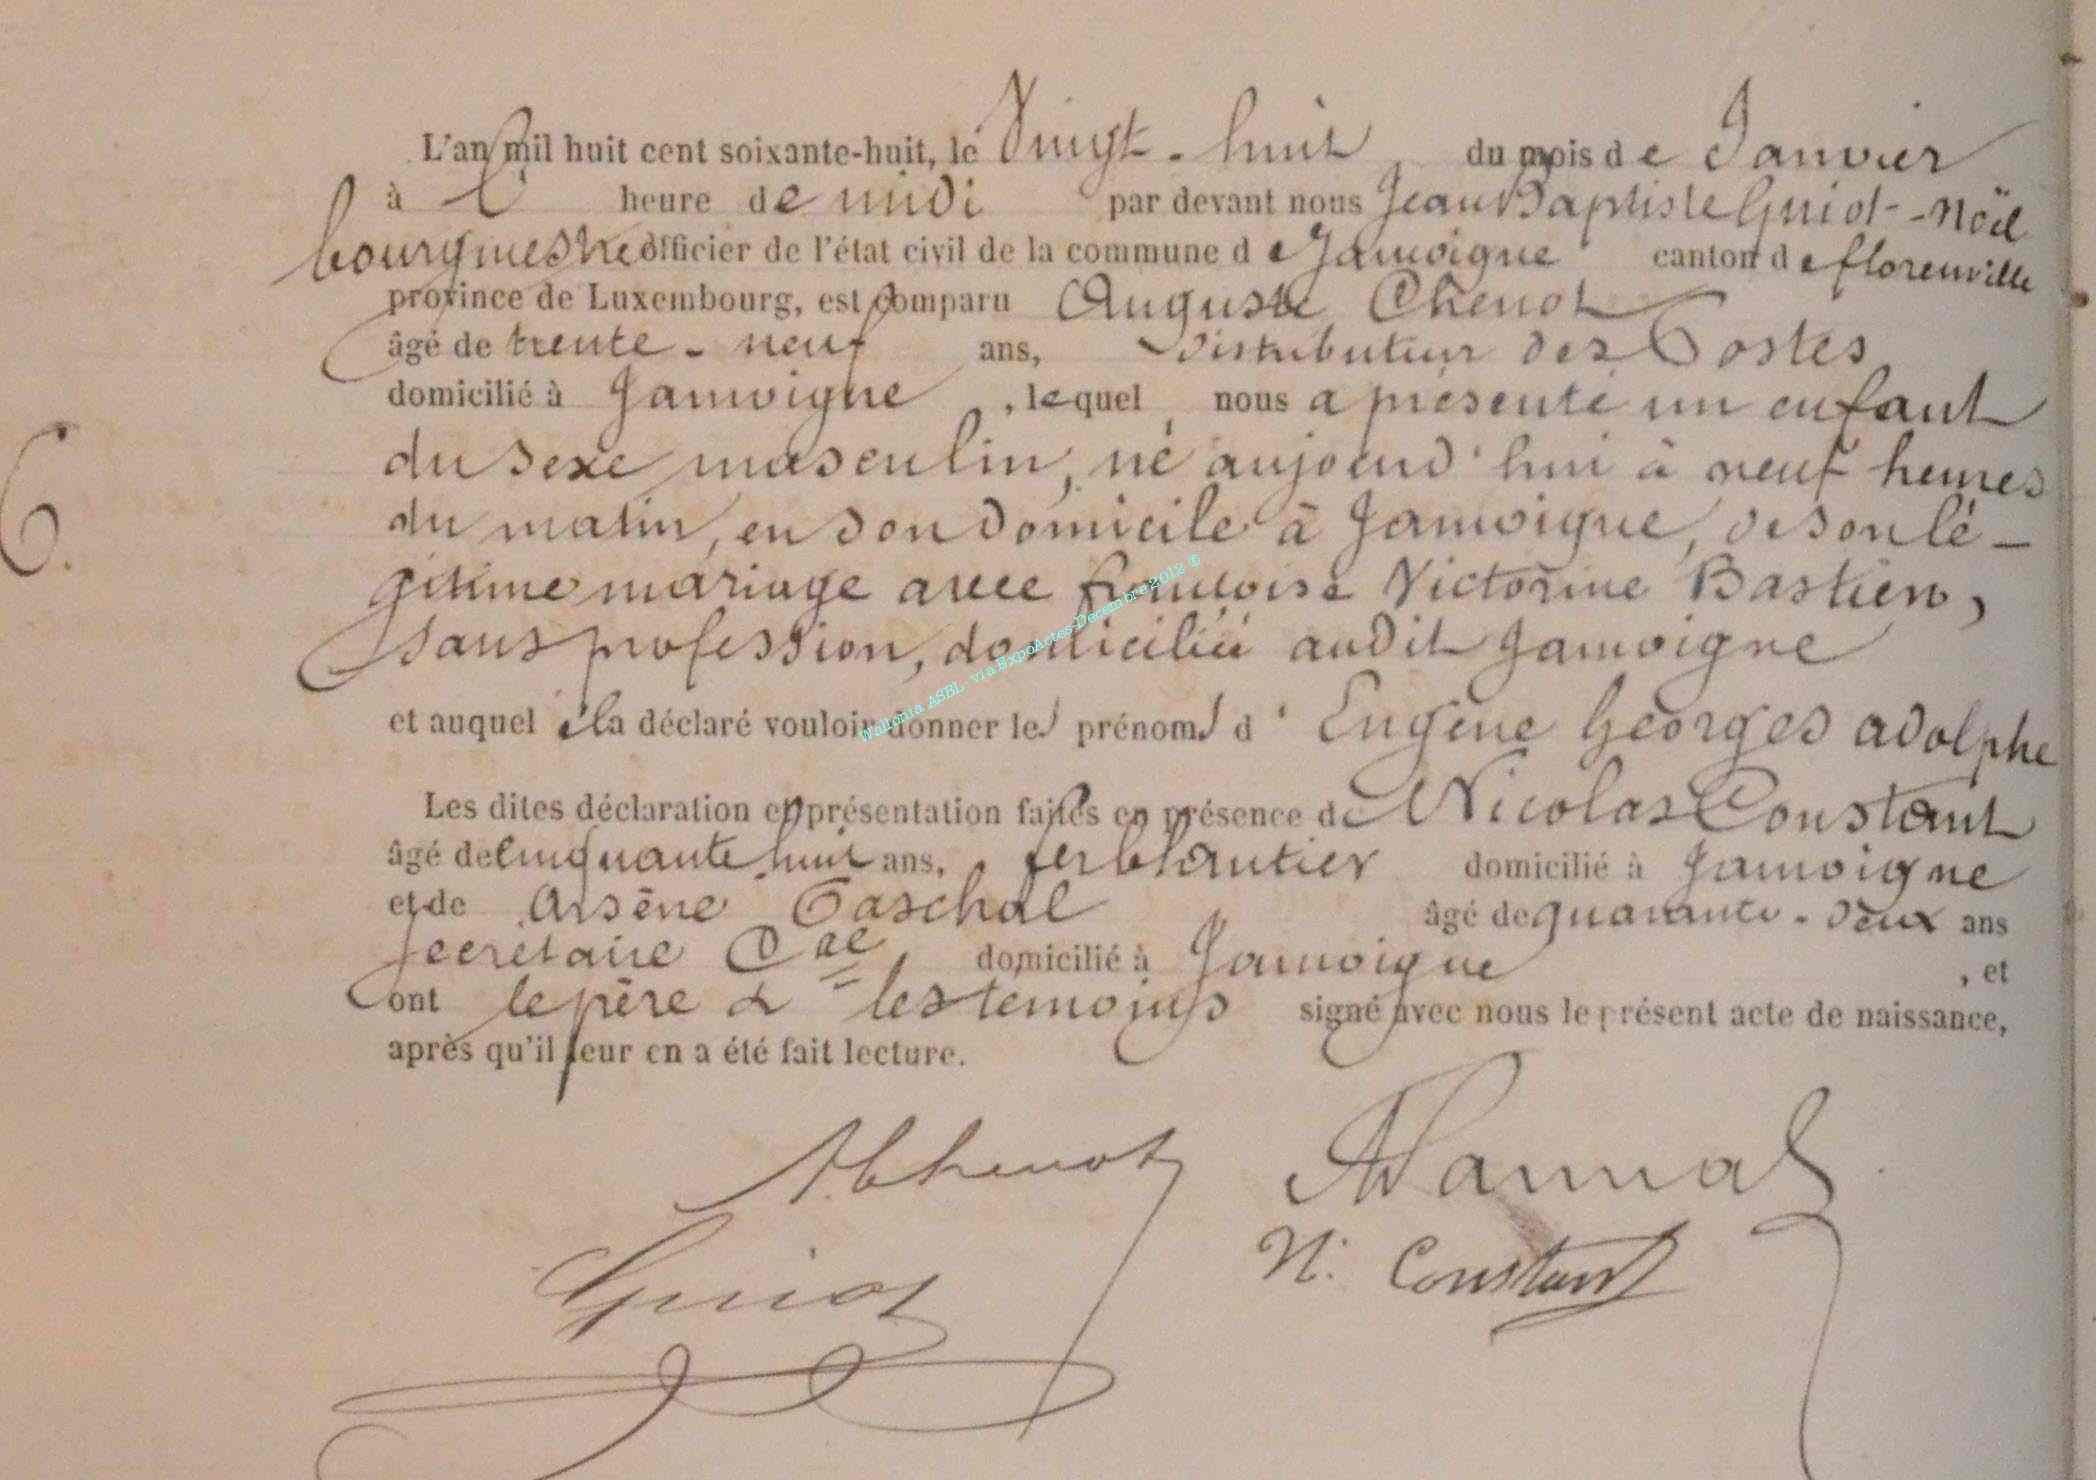 L'an mil huit cent soixante-huit, le Vingt-huit du mois de Janvier
à l' heure de midi par devant nous Jean Baptiste Guiot-Noël
bourgmestre officier de l'état civil de la commune de Jamoigne canton de florenville
province de Luxembourg, est comparu Auguste Chenot
âgé de trente-neuf ans, Distributeur des Postes
domicilié à Jamoigne, lequel nous a présenté un enfant
6. du sexe masculin, né aujourd'hui à neuf heures
du matin, en son domicile à Jamoigne, de son lé-
gitime mariage avec françoise Victorine Bastien,
sans profession, domiciliée audit Jamoigne
et auquel il a déclaré vouloir donner les prénoms d'Eugène Georges adolphe
Les dites déclaration et présentation faites en présence de Nicolas Constant
âgé de cinquante huit ans, ferblantier domicilié à Jamoigne
et de Arsène Paschal âgé de quarante-deux ans
secrétaire Cal domicilié à Jamoigne, et
ont le père & les témoins signé avec nous le présent acte de naissance,
après qu'il leur en a été fait lecture.
A. Chenot
Guiot N. Constant
Wallonia ASBL - via ExpoActes-Decembre 2012 ©